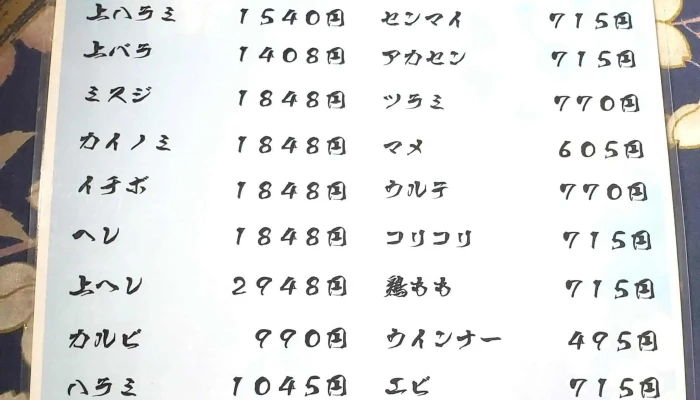 上ハラミ 1540円
上バラ 1408円
ミスジ 1848円
カイノミ 1848円
イチボ 1848円
ヘレ 1848円
上ヘレ 2948円
カルビ 990円
ハラミ 1045円
センマイ 715円
アカセン 715円
ツラミ 770円
マメ 605円
ウルテ 770円
コリコリ 715円
鶏もも 715円
ウインナー 495円
エビ 715円